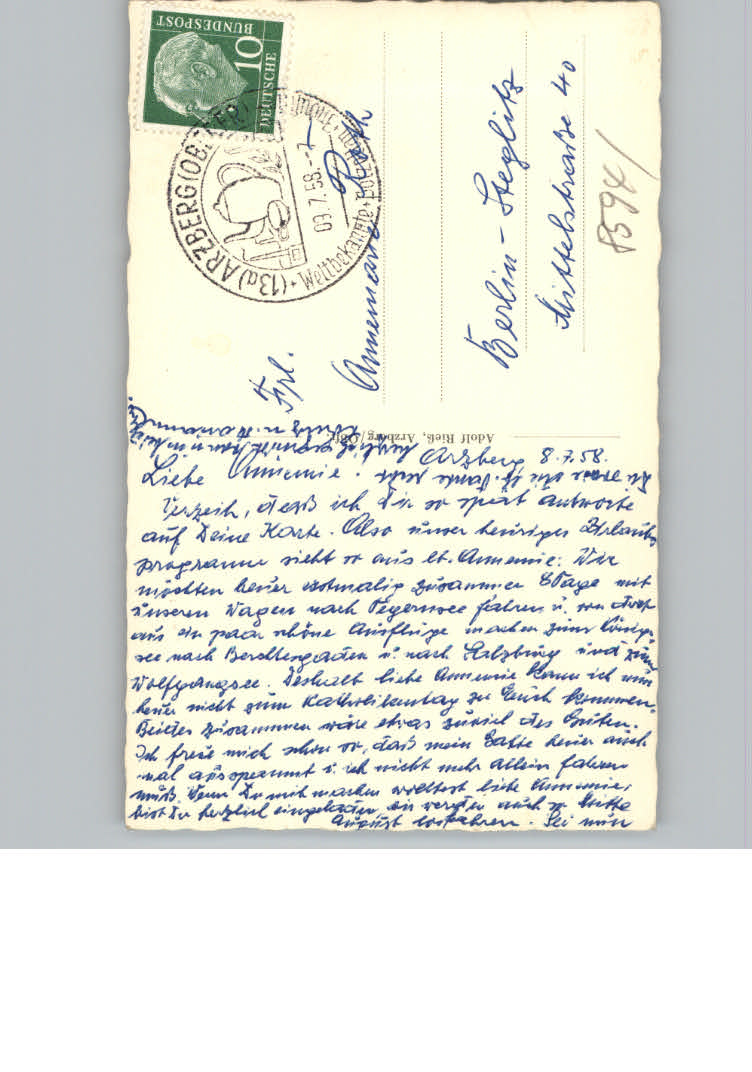 DEUTSCHE
BUNDESPOST
10
(13a) ARZBERG (OBERFR)
Weltbekannte Porzellan
09.7.58.--7
Frl.
Annemarie Roth
Berlin-Steglitz
Mittelstraße 40
8594/
Adolf Rieß, Arzberg/Ofr.
Arzberg 8.7.58.
Liebe Annemie.
Verzeih, daß ich Dir so spät antworte
auf Deine Karte. Also unser heuriges Urlaubs
programm sieht so aus lb. Annemie: Wir
möchten heuer erstmalig zusammen 8 Tage mit
unseren Wagen nach Tegernsee fahren u. von dort
aus ein paar schöne Ausflüge machen zum Königs-
see nach Berchtesgaden u. nach Salzburg und zum
Wolfgangsee. Deshalb liebe Annemie kann ich nun
heuer nicht zum Katholikentag zu Euch kommen,
Beides zusammen wäre etwas zuviel des Guten.
Ich freue mich schon so, daß mein Gatte heuer auch
mal ausspannt u. ich nicht mehr allein fahren
muß. Wenn Du mit machen wolltest liebe Annemie,
bist Du herzlich eingeladen, wir werden auch so Mitte
August losfahren. Sei nun